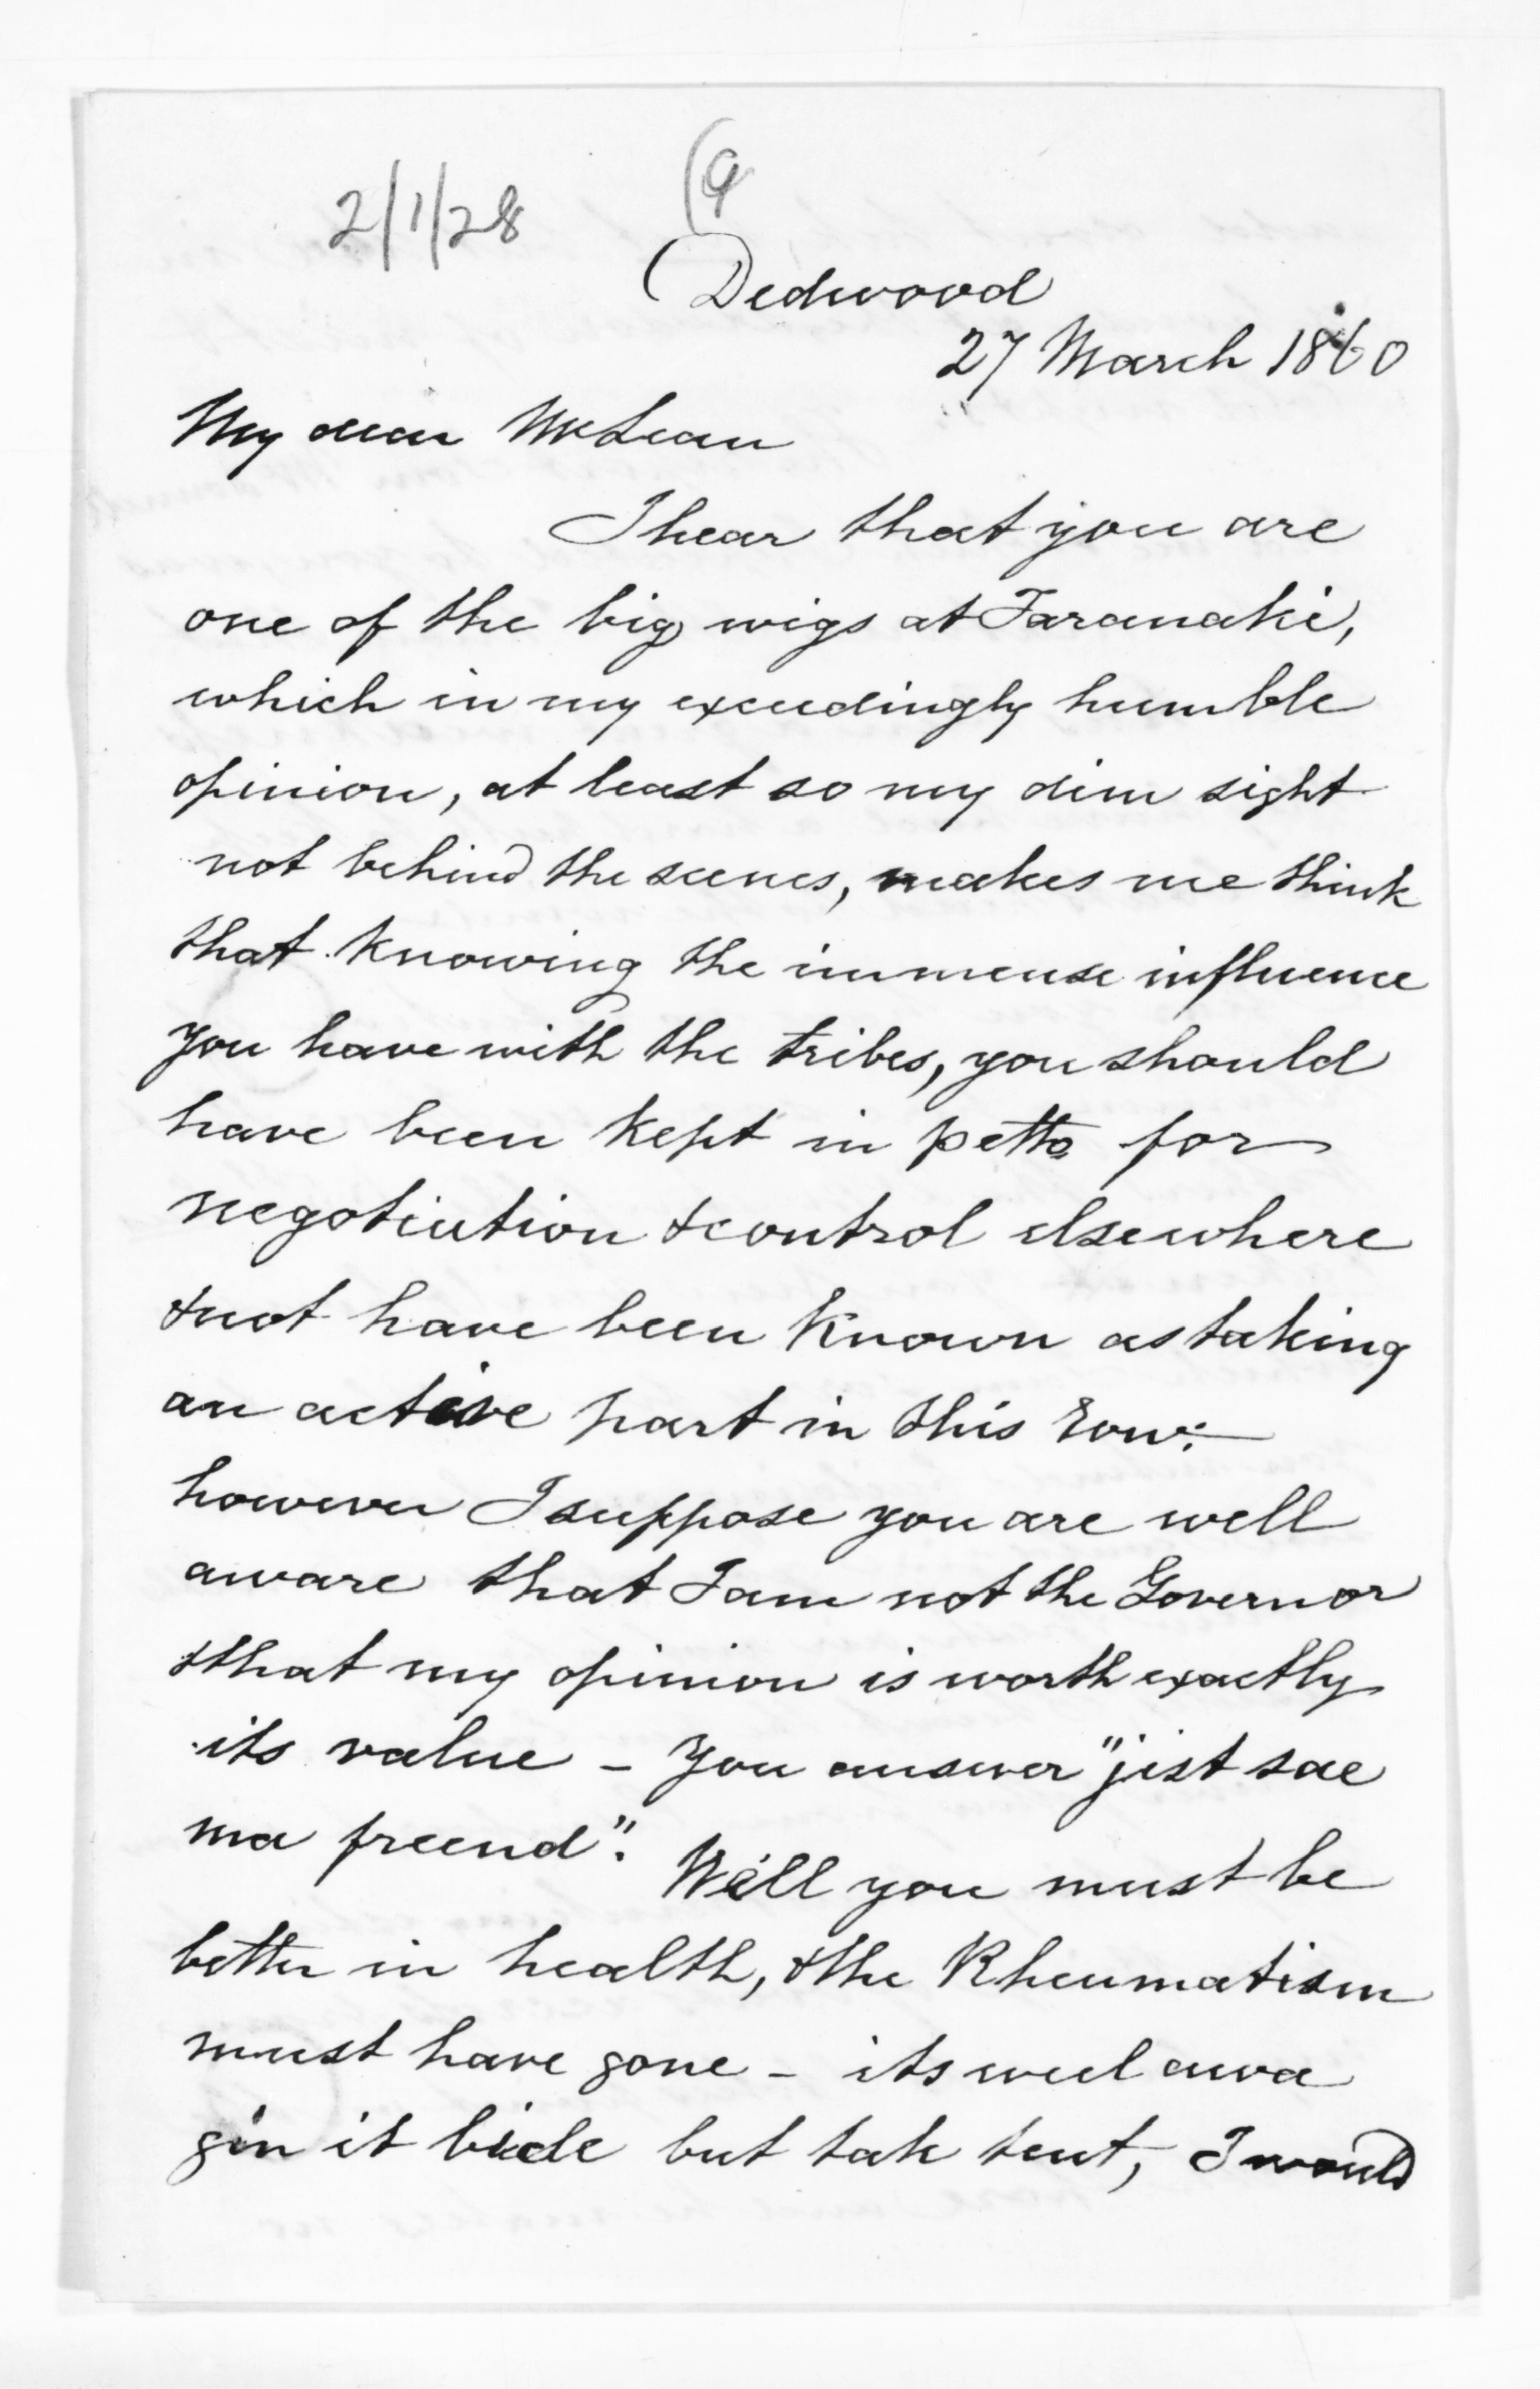 2/1/28
(9
Dedwood
27 March 1860
My dear McLean
I hear that you are
one of the big wigs at Taranaki,
which in my exceedingly humble
opinion, at least so my dim sight
not behind the scenes, makes me think
that knowing the immense influence
you have with the tribes, you should
have been kept in petto for
negotiation & control elsewhere
& not have been known as taking
an active part in this row:—
however I suppose you are well
aware that I am not the Governor
& that my opinion is worth exactly
its value – You answer "jist sae
ma freend".
Well you must be
better in health, & the Rheumatism
must have gone – its weel awa
gin it bide but tak tent, I would